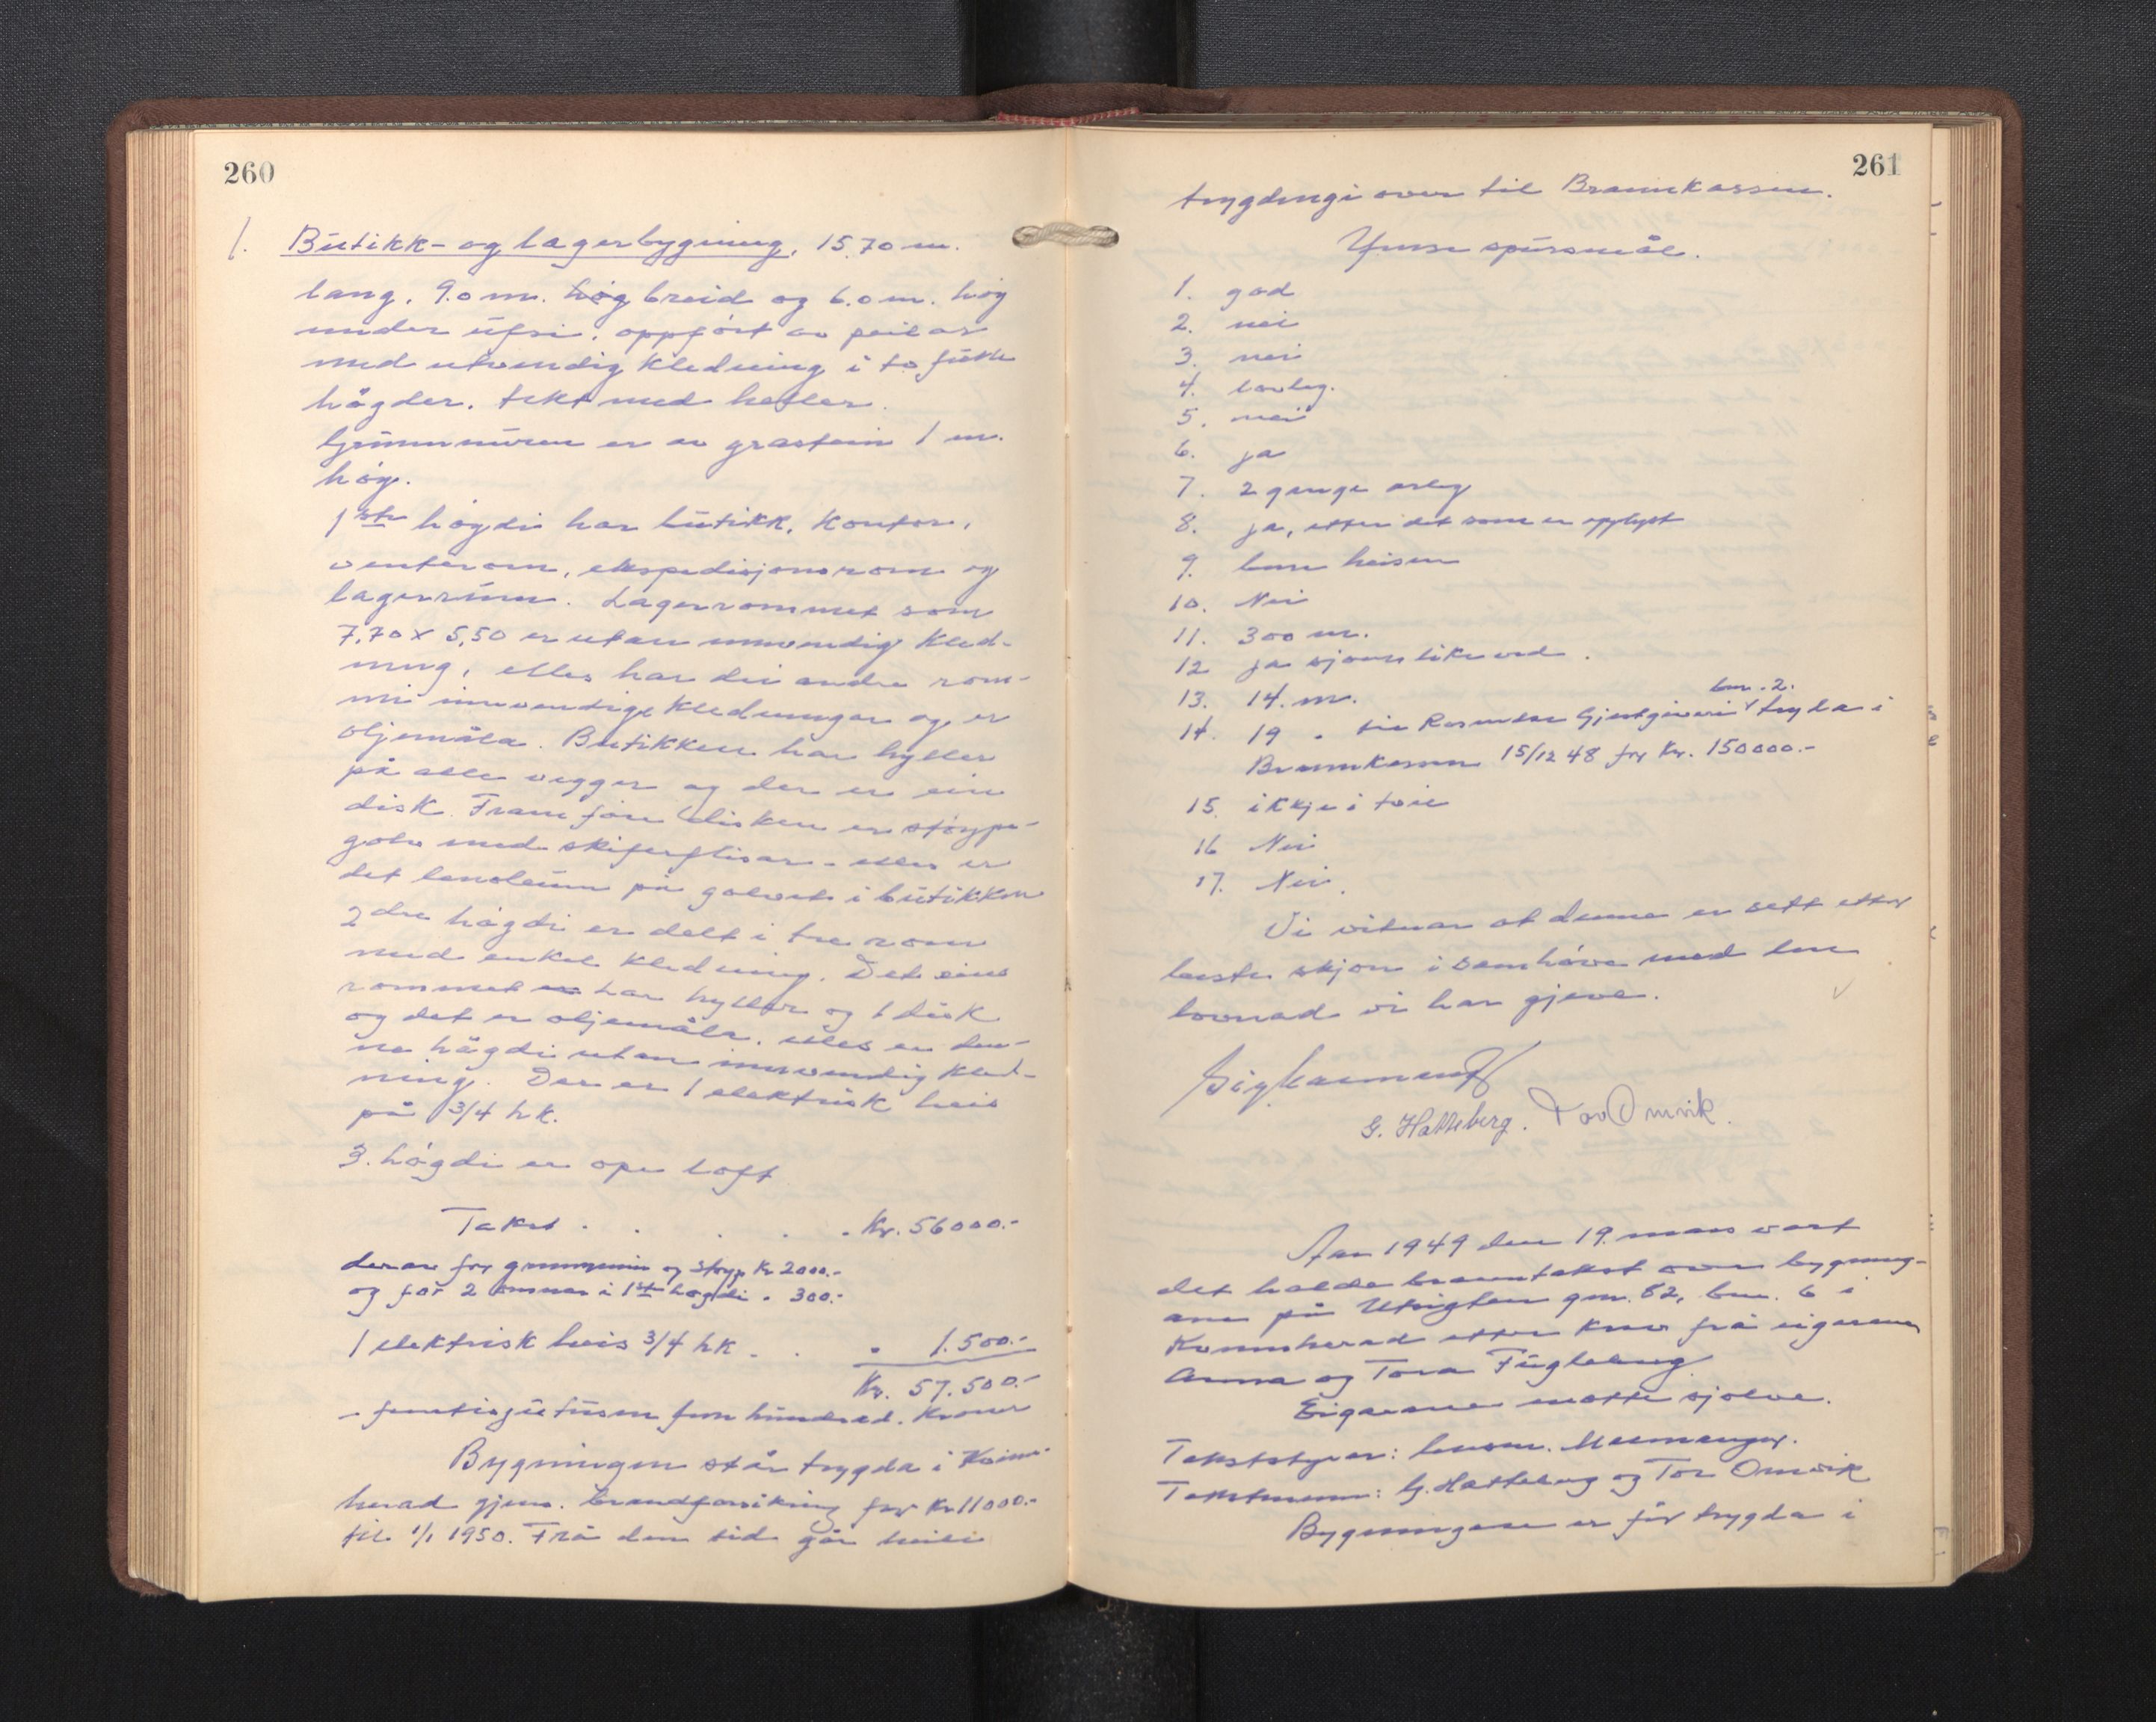 260
1. Butikk- og lagerbygning, 15.70 m.
lang, 9.0 m. høg breid og 6.0 m. høg
under ufsi, oppført av peilar
med utvendig kledning i to fulle
høgder, tekt med heller.
Grunnmuren er av grastein 1 m.
høg.
1ste høgdi har butikk, kontor,
venterom, ekspedisjonsrom og
lagerrum. Lagerrommet som
7,70 x 5,50 er utan innvendig kled-
ning, elles har dei andre rom-
mi innvendige kledningar og er
oljemåla. Butikken har hyller
på alle vegger og der er ein
disk. Framfor disken er støype-
golv med skiferflisar - elles er
det lenoleum på golvet i butikken
2dre høgdi er delt i tre rom
med enkel kledning. Det eine
rommet er har hyller og 1 disk
og det er oljemåla, elles er den-
ne høgdi utan innvendig kled-
ning. Der er 1 elektrisk heis
på 3/4 hk.
3. høgdi er ope loft
Takst . . . . . Kr. 56000.-
derav for grunnmur og støyp Kr 2000.-
og for 2 omnar i 1ste høgdi . 300.-
1 elektrisk heis 3/4 hk . . . 1.500.-
Kr. 57.500.-
- femtisjutusen fem hundrad. Kroner
Bygningen står trygda i Kvinn-
herad gjens. brandforsikring for Kr 11000.-
til 1/1 1950. Frå den tid går heile
261
trygdingi over til Brannkassen.
Ymse spursmål.
1. god
2. nei
3. nei
4. lovleg.
5. nei
6. ja
7. 2 gonge årleg
8. ja, etter det som er opplyst
9. berre heisen
10. Nei
11. 300 m.
12 ja sjøen like ved.
13. 14. m.
bnr. 2.
14. 19 . til Rosendal Gjestgiveri trygda i
Brannkassen 15/12 48 for Kr. 150000.-
15. ikkje i tvil
16 Nei
17. Nei.
Vi vitnar at denne er sett etter
beste skjøn i samhøve med den
lovnad vi har gjeve.
G. Hatteberg. Tor Omvik.
Aar 1949 den 19. mars vart
det halde branntakst over bygning-
ane på Utsigten gnr. 82, bnr. 6 i
Kvinnherad etter krav frå eigarane
Anna og Tora Fugleberg.
Eigarane møtte sjølve.
Takststyrar: lensm. Malmanger.
Takstmenn: G. Hatteberg og Tor Omvik
Bygningane er før trygda i